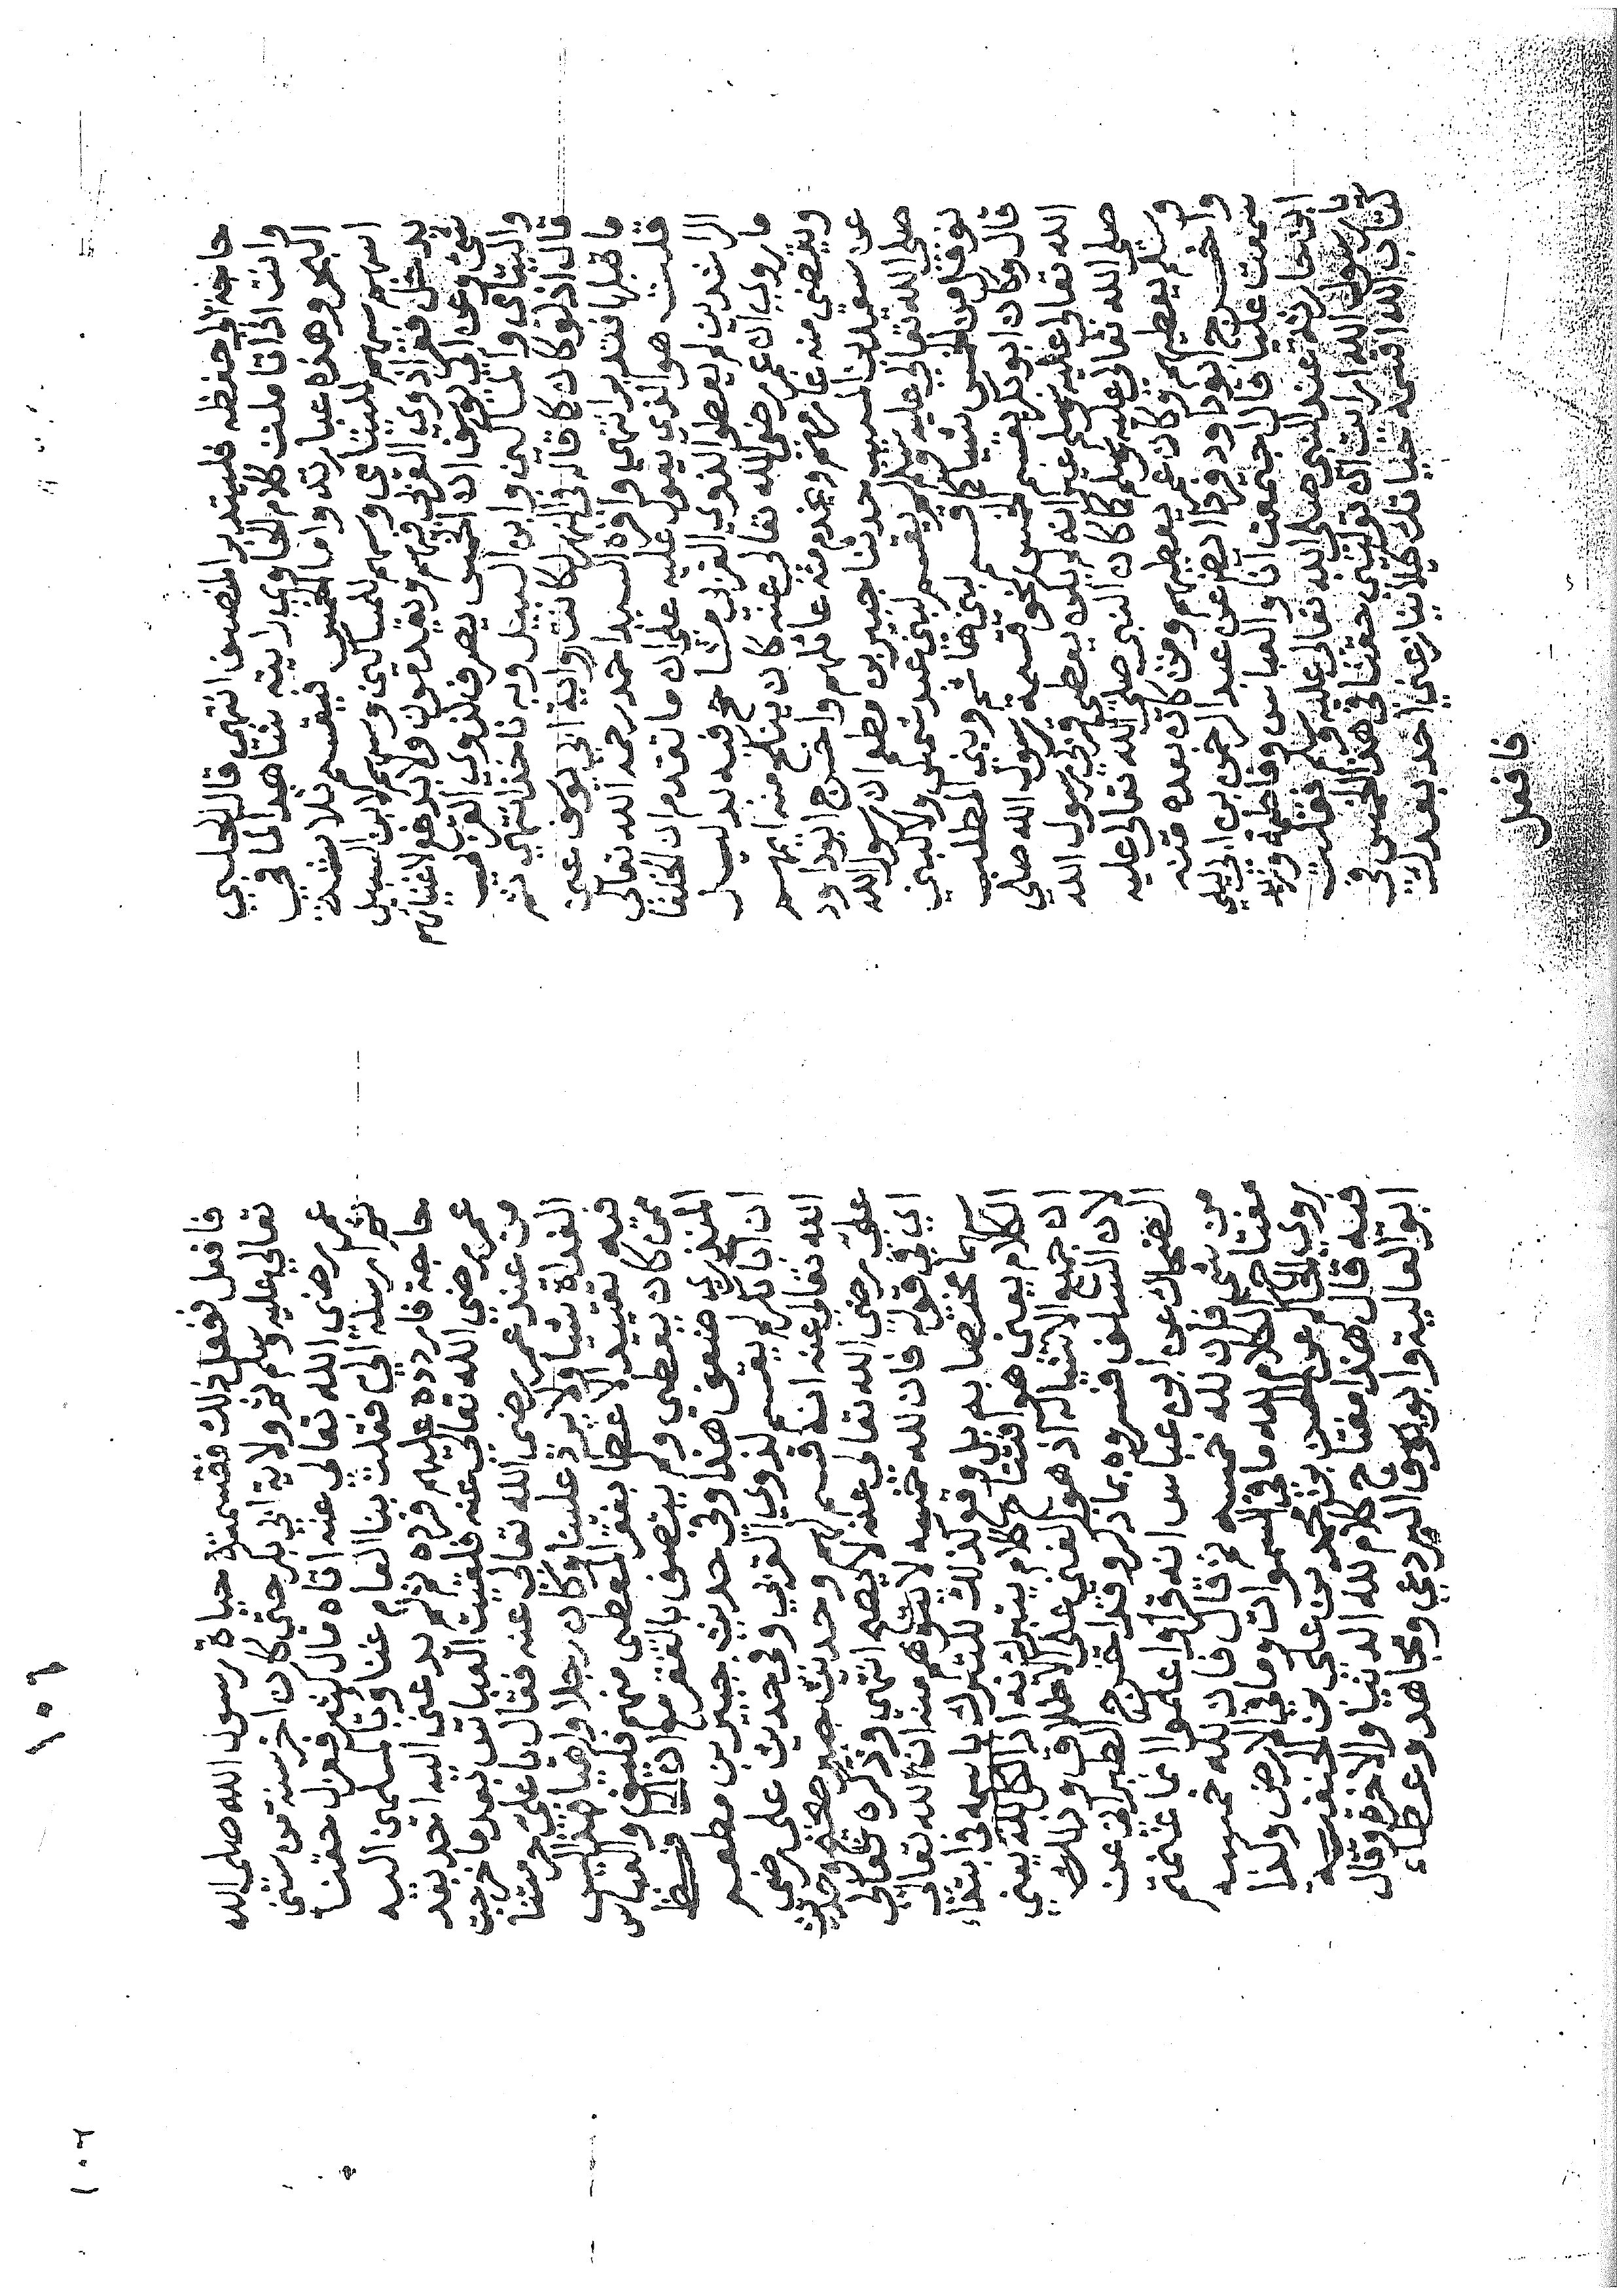 حاجة الى حفظه فليتدبر المنصف انتهى قال الحلبي
وانت اذا تاملت كلام الحاوي رايته شاهدا لما في
البحر وهذه عبارته واما الخمس فيقسم ثلاثة
اسهم سهم لليتامى وسهم للمساكين وسهم لابن السبيل
يدخل فقراء ذوي القربى فيهم ويقدمون ولا يدفع لاغنيائهم
شئ وعن ابي يوسف ان الخمس يصرف لذوي القربى
واليتامى والمساكين وابن السبيل وبه ناخذ انتهى ثم
قال اذ لو كان كما قاله في النهر لكانت رواية ابي يوسف عين
ما قبلها فتدبر انتهى وافره السيد احمد رحمه الله تعالى
قلت هو الذي يعول عليه على ان ما تقدم ان الخلفا
الراشدين لم يعطوا لذوي القربى شيئا فيه بدليل
ما روي ان عمر رضي الله تعالى عنه كان ينكح منه ايمهم
ويقضي منه غارمهم ويخدم منه عائلهم واخرج ابو داود
عن سعيد بن المسيب حدثنا جبير بن مطعم ان رسول الله
صلى الله تعالى عليه وسلم لم يقسم لبني عبد شمس ولا لبني
نوفل من الخمس شيئا كما قسم لبني هاشم وبني المطلب
قال وكان ابو بكر يقسم الخمس نحو قسمة رسول الله صلى
الله تعالى عليه وسلم غير انه لم يكن يعطي قربى رسول الله
صلى الله تعالى عليه وسلم كما كان النبي صلى الله تعالى عليه
وسلم يعطيهم وكان عمر يعطيهم ومن كان بعده منه
واخرج ابو داود وايضا عن عبد الرحمن بن ابي ليلى
سمعت عليا قال اجتمعت انا والعباس وفاطمة وزيد
ابن حارثة عند النبي صلى الله تعالى عليه وسلم فقلت
يا رسول الله ان رايت ان توليني حقنا في هذا الخمس في
كتاب الله اقسمه حياتك كيلا ينازعني احد بعدك
فافعل
فافعل ففعل ذلك فقسمته حياة رسول الله صلى الله
تعالى عليه وسلم ثم ولاية ابي بكر حتى كان اخر سنة من سني
عمر رضي الله تعالى عنه اتاه مال كثير فعزل حقنا
ثم ارسله الي فقلت بنا العام غنا وبالمسلمين اليه
حاجة فاردده عليهم فرده ثم لم يدعني اليه احد بعد
عمر رضي الله تعالى عنه فلقيت العباس بعد ما خرجت
من عند عمر رضي الله تعالى عنه فقال يا علي حرمتنا
الغداة شيئا لا يرد علينا وكان رجلا داهيا فهذا ليس
فيه تقييد الاعطا بفقر المعطى منهم فليف والعباس
ممن كان يعطى ولم يتصف بالفقر مع ان الحافظ
المنذري ضعف هذا وفي حديث جبير بن مطعم
ان ابا بكر لم يقسم لذوي القربى وفي حديث علي رضي
الله تعالى عنه انه قسم لهم وحديث جبير صحيح وحديث
علي رضي الله تعالى عنه لا يصح انتهى وذكره تعالى
اي في قوله فان لله خمسه لا يتوهم منه ان لله تعالى
سهما مختصا به بل وقع كذلك للتبرك باسمه في ابتداء
الكلام يعني هو افتتاح كلام يتبرك به اذ الكل لله يعني
ان جميع الاشياء له اذ هو الغني على الاطلاق وذلك
لان السلف فسروه بما ذكر وقد اخرج الطبراني عن
الضحاك عن ابن عباس انه قرا واعلموا انما غنمتم
من شئ فان لله خمسه ثم قال فان لله خمسه
مفتاح الكلام لله ما في السموات وما في الارض وكذا
روى الحاكم عن الحسن بن محمد بن علي بن الحنفية
فيه قال هذا مفتاح كلام لله الدنيا والاخرة وقال
ابو العالية وابو يوسف البردعي ومجاهد وعطاء
١٠٦
١٠٦